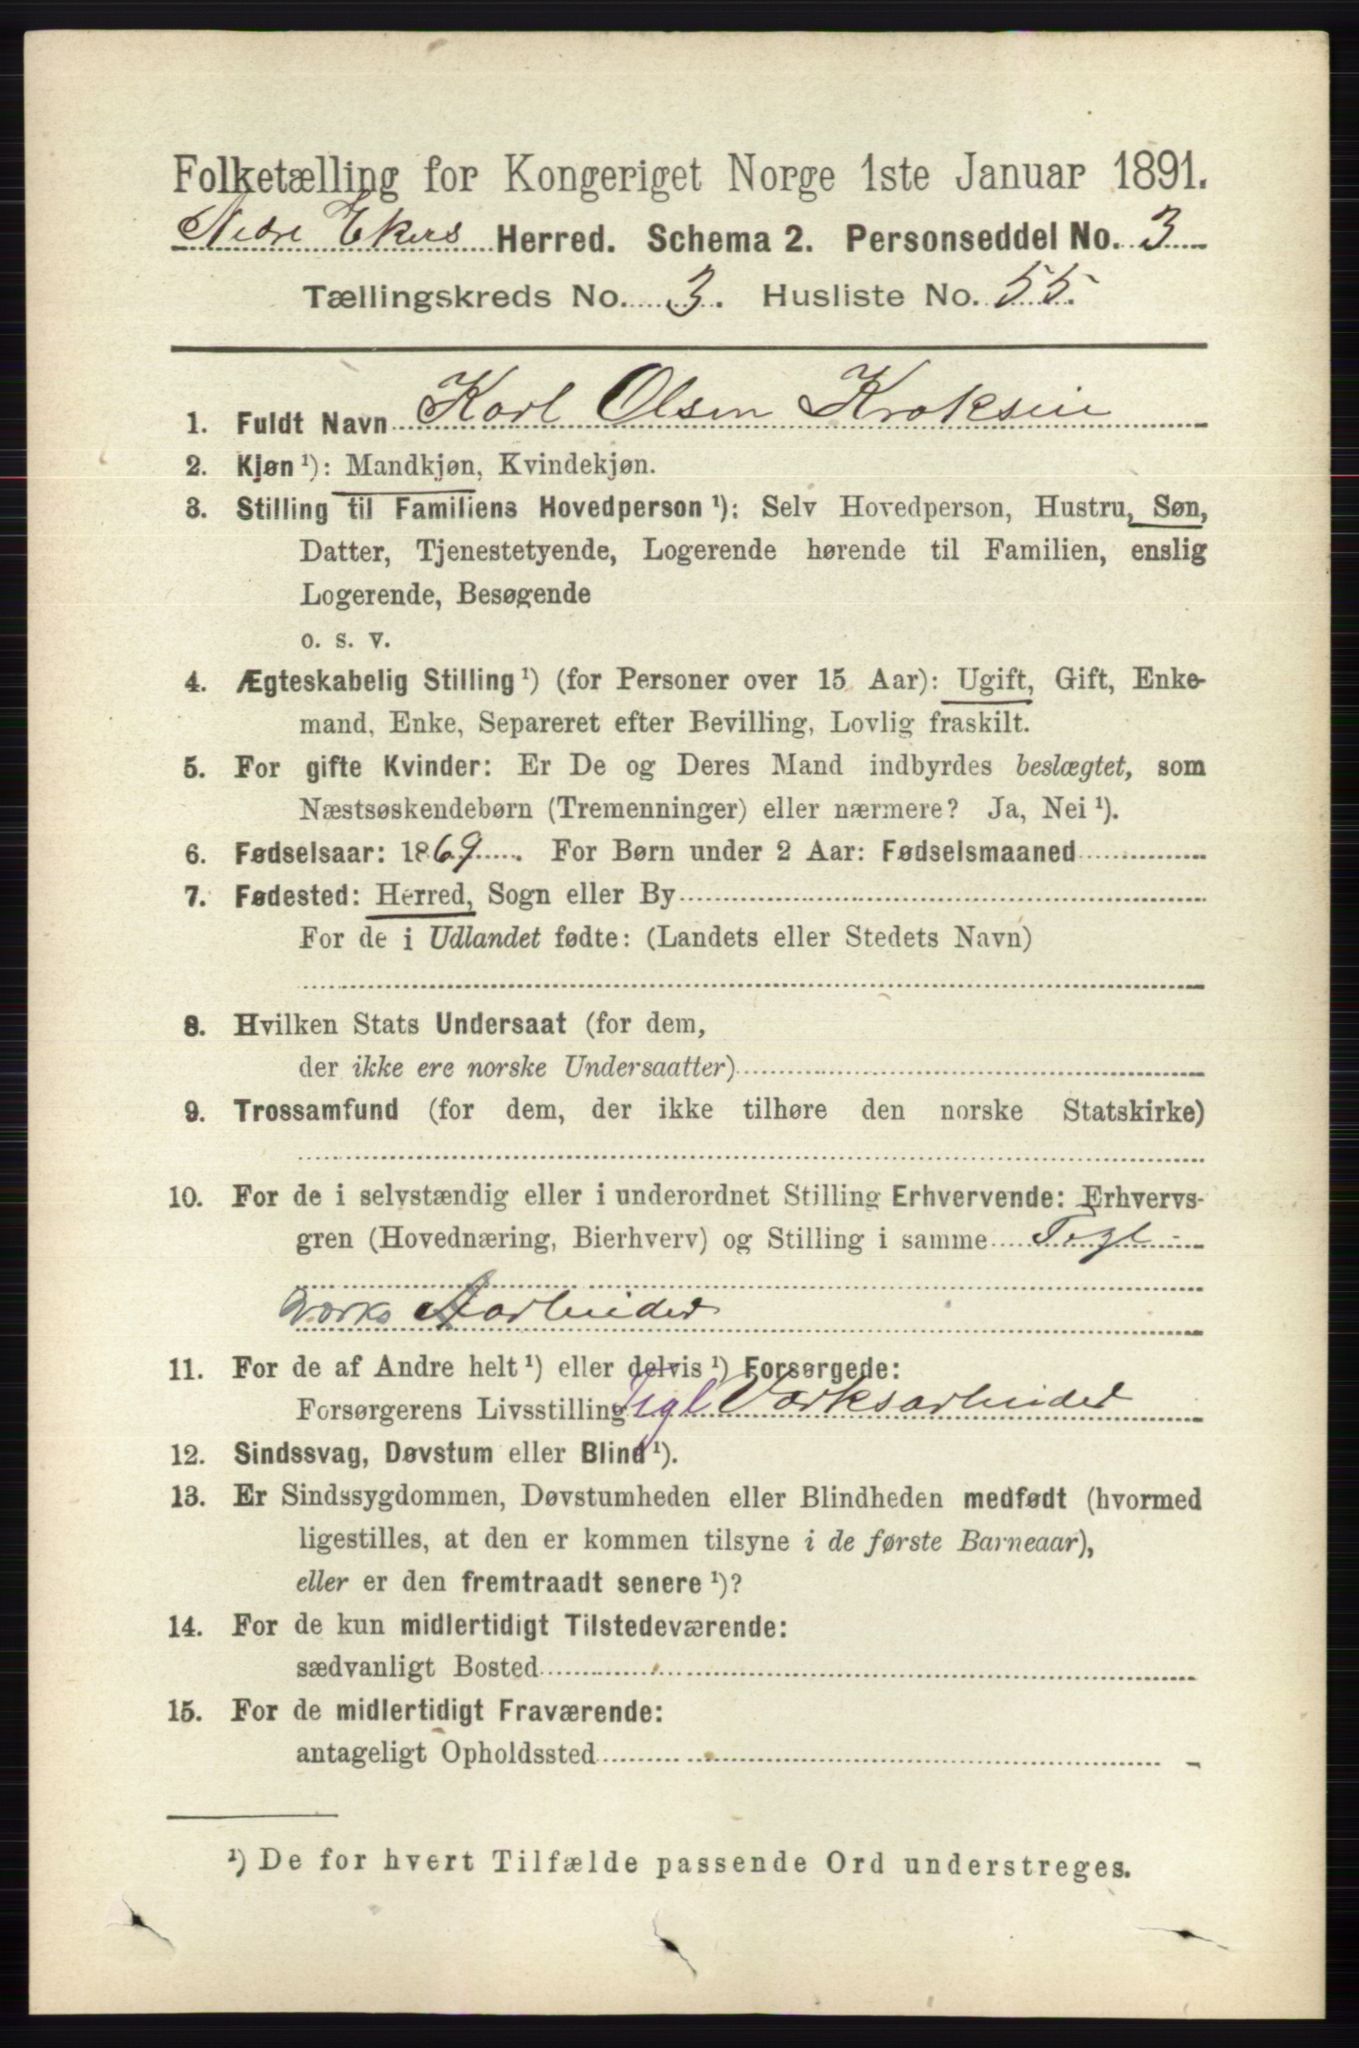 Folketælling for Kongeriget Norge 1ste Januar 1891.
Nedre Ekers Herred. Schema 2. Personseddel No. 3
Tællingskreds No. 3. Husliste No. 55.
1. Fuldt Navn Karl Olsen Kroksein
2. Kjøn ¹): Mandkjøn, Kvindekjøn.
3. Stilling til Familiens Hovedperson ¹): Selv Hovedperson, Hustru, Søn,
Datter, Tjenestetyende, Logerende hørende til Familien, enslig
Logerende, Besøgende
o. s. v.
4. Ægteskabelig Stilling ¹) (for Personer over 15 Aar): Ugift, Gift, Enke-
mand, Enke, Separeret efter Bevilling, Lovlig fraskilt.
5. For gifte Kvinder: Er De og Deres Mand indbyrdes beslægtet, som
Næstsøskendebørn (Tremenninger) eller nærmere? Ja, Nei ¹).
6. Fødselsaar: 1869. For Børn under 2 Aar: Fødselsmaaned
7. Fødested: Herred, Sogn eller By
For de i Udlandet fødte: (Landets eller Stedets Navn)
8. Hvilken Stats Undersaat (for dem,
der ikke ere norske Undersaatter)
9. Trossamfund (for dem, der ikke tilhøre den norske Statskirke)
10. For de i selvstændig eller i underordnet Stilling Erhvervende: Erhvervs-
gren (Hovednæring, Bierhverv) og Stilling i samme Tegl-
værks Aarbeider
11. For de af Andre helt ¹) eller delvis ¹) Forsørgede:
Forsørgerens Livsstilling Tegl Værksarbeider
12. Sindssvag, Døvstum eller Blind ¹).
13. Er Sindssygdommen, Døvstumheden eller Blindheden medfødt (hvormed
ligestilles, at den er kommen tilsyne i de første Barneaar),
eller er den fremtraadt senere ¹)?
14. For de kun midlertidigt Tilstedeværende:
sædvanligt Bosted
15. For de midlertidigt Fraværende:
antageligt Opholdssted
¹) De for hvert Tilfælde passende Ord understreges.